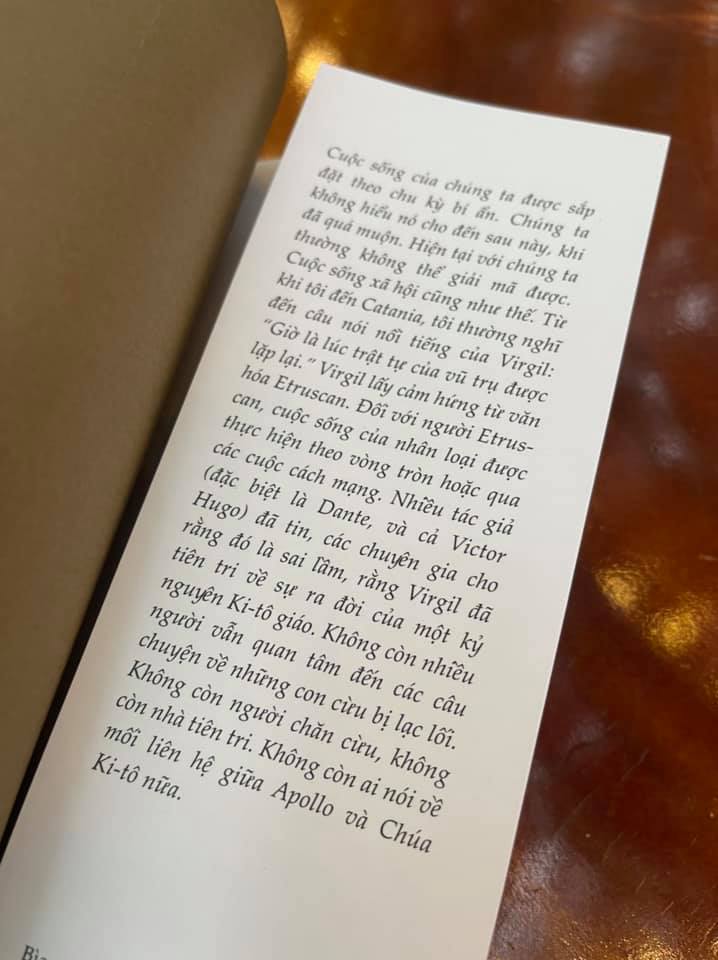 Cuộc sống của chúng ta được sắp
đặt theo chu kỳ bí ẩn. Chúng ta
không hiểu nó cho đến sau này, khi
đã quá muộn. Hiện tại với chúng ta
thường không thể giải mã được.
Cuộc sống xã hội cũng như thế. Từ
khi tôi đến Catania, tôi thường nghĩ
đến câu nói nổi tiếng của Virgil:
“Giờ là lúc trật tự của vũ trụ được
lặp lại.” Virgil lấy cảm hứng từ văn
hóa Etruscan. Đối với người Etrus-
can, cuộc sống của nhân loại được
thực hiện theo vòng tròn hoặc qua
các cuộc cách mạng. Nhiều tác giả
(đặc biệt là Dante, và cả Victor
Hugo) đã tin, các chuyên gia cho
rằng đó là sai lầm, rằng Virgil đã
tiên tri về sự ra đời của một kỷ
nguyên Ki-tô giáo. Không còn nhiều
người vẫn quan tâm đến các câu
chuyện về những con cừu bị lạc lối.
Không còn người chăn cừu, không
còn nhà tiên tri. Không còn ai nói về
mối liên hệ giữa Apollo và Chúa
Ki-tô nữa.